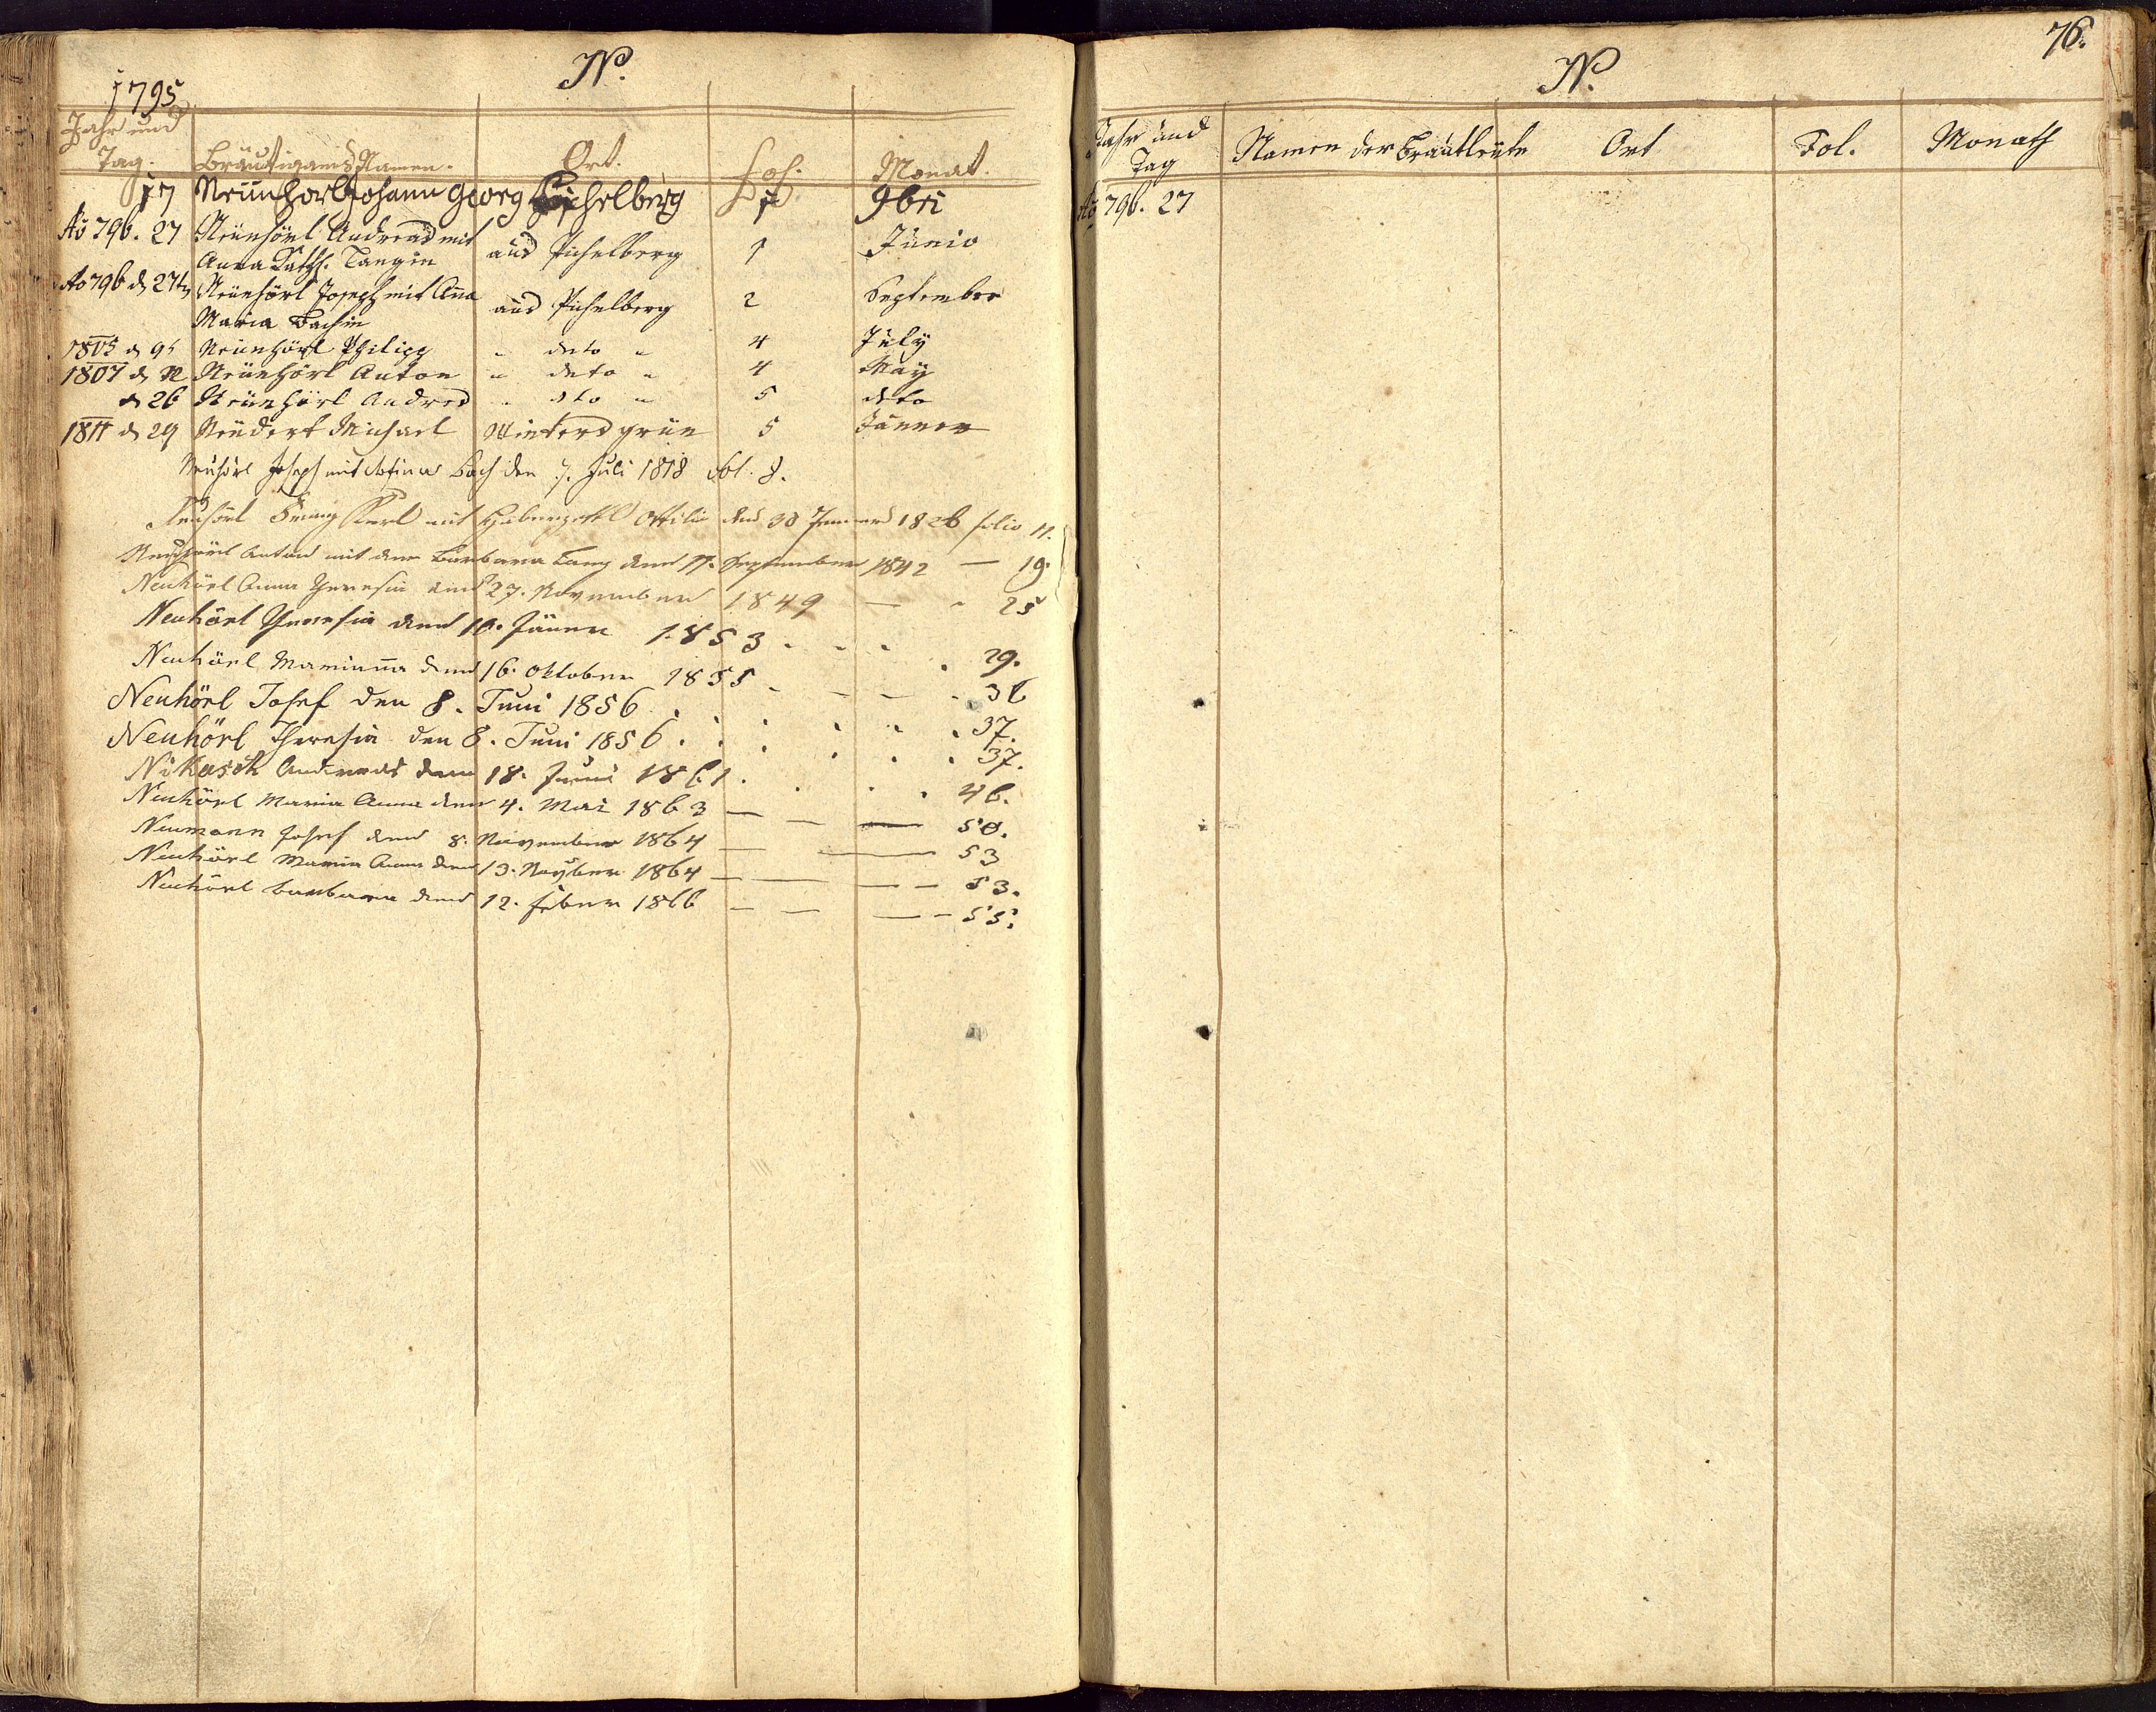 N.
1795
Jahr und
Tag. Bräutigams Namen. Ort. Fol. Monat.
17 Neünhorl Johann Georg Pichelberg 1 9bri
Ao 796. 27 Neünhörl Andreas mit
Anna Kath. Langin aus Pichelberg 1 Junio
Ao 796 d 27t Neünhörl Joseph mit Anna
Maria Bachin aus Pichelberg 2 September
1805 d 9t Neünhörl Philipp " deto " 4 July
1807 d Neünhörl Anton " deto " 4 May
d 26 Neünhörl Andres " dto " 5 deto
1811 d 29 Neüdert Michael Wintersgrün 5 Jänner
Neuhörl Joseph mit Bach den 7. Juli 1818 Fol. 8.
Neuhörl Karl mit Ottilia den 30 1826 folio 11.
Neuhörl Anton mit der Barbara Lang den 17. September 1842 — 19.
Neuhörl Anna Theresia den 27. November 1849 — " 25
Neuhörl Theresia den 10. Jäner 1853 . . . . 29.
Neuhörl Marianna den 16. Oktober 1855 - - - - 36
Neuhörl Josef den 8. Juni 1856 . . . . . . 37.
Neuhörl Theresia den 8. Juni 1856 . . . . . . 37.
Nikasch Andreas den 18. Juni 1861 . . . 46.
Neuhörl Maria Anna den 4. Mai 1863 — — — 50.
Neumann Josef den 8. November 1864 — — 53
Neuhörl Maria Anna den 13. November 1864 — — — — 53.
Neuhörl Barbara den 12. Feber 1866 — — — — 55.
76.
N.
Jahr und
Tag Namen der Brautleute Ort Fol. Monath
Ao 796. 27